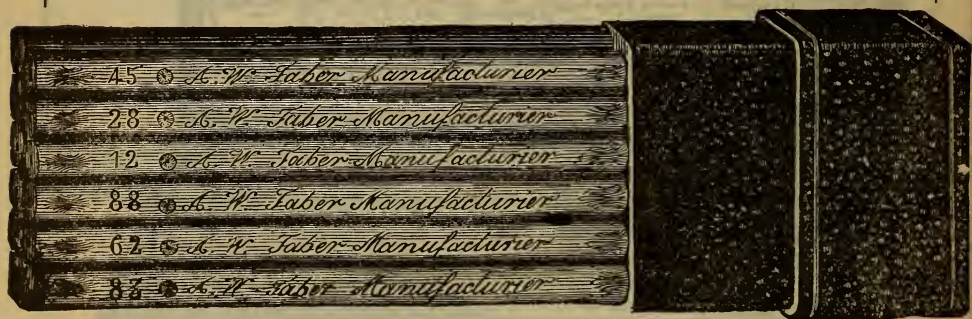 45 A. W. Faber Manufacturier
28 A. W. Faber Manufacturier
12 A. W. Faber Manufacturier
88 A. W. Faber Manufacturier
62 A. W. Faber Manufacturier
83 A. W. Faber Manufacturier